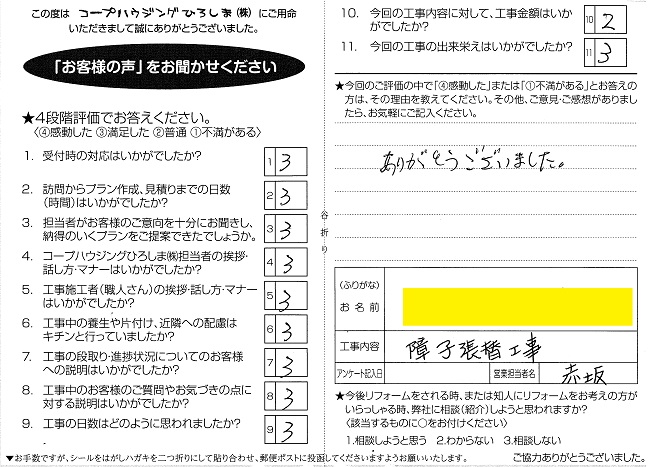 この度は コープハウジングひろしま(株) にご用命
いただきまして誠にありがとうございました。
「お客様の声」をお聞かせください
★4段階評価でお答えください。
〈④感動した ③満足した ②普通 ①不満がある〉
1. 受付時の対応はいかがでしたか？ 1 3
2. 訪問からプラン作成、見積りまでの日数
(時間)はいかがでしたか？ 2 3
3. 担当者がお客様のご意向を十分にお聞きし、
納得のいくプランをご提案できたでしょうか。 3 3
4. コープハウジングひろしま㈱担当者の挨拶・
話し方・マナーはいかがでしたか？ 4 3
5. 工事施工者(職人さん)の挨拶・話し方・マナー
はいかがでしたか？ 5 3
6. 工事中の養生や片付け、近隣への配慮は
キチンと行っていましたか？ 6 3
7. 工事の段取り・進捗状況についてのお客様
への説明はいかがでしたか？ 7 3
8. 工事中のお客様のご質問やお気づきの点に
対する説明はいかがでしたか？ 8 3
9. 工事の日数はどのように思われましたか？ 9 3
谷折り
10. 今回の工事内容に対して、工事金額はいか
がでしたか？ 10 2
11. 今回の工事の出来栄えはいかがでしたか？ 11 3
★今回のご評価の中で「④感動した」または「①不満がある」とお答えの
方は、その理由を教えてください。その他、ご意見・ご感想がありました
ら、お気軽にご記入ください。
ありがとうございました。
(ふりがな)
お名前
工事内容 障子張替工事
アンケート記入日 営業担当者名 赤坂
★今後リフォームをされる時、または知人にリフォームをお考えの方が
いらっしゃる時、弊社に相談(紹介)しようと思われますか？
〈該当するものに○をお付けください〉
1.相談しようと思う 2.わからない 3.相談しない
▼お手数ですが、シールをはがしハガキを二つ折りにして貼り合わせ、郵便ポストに投函してくださいますようお願いいたします。 ご協力ありがとうございました。